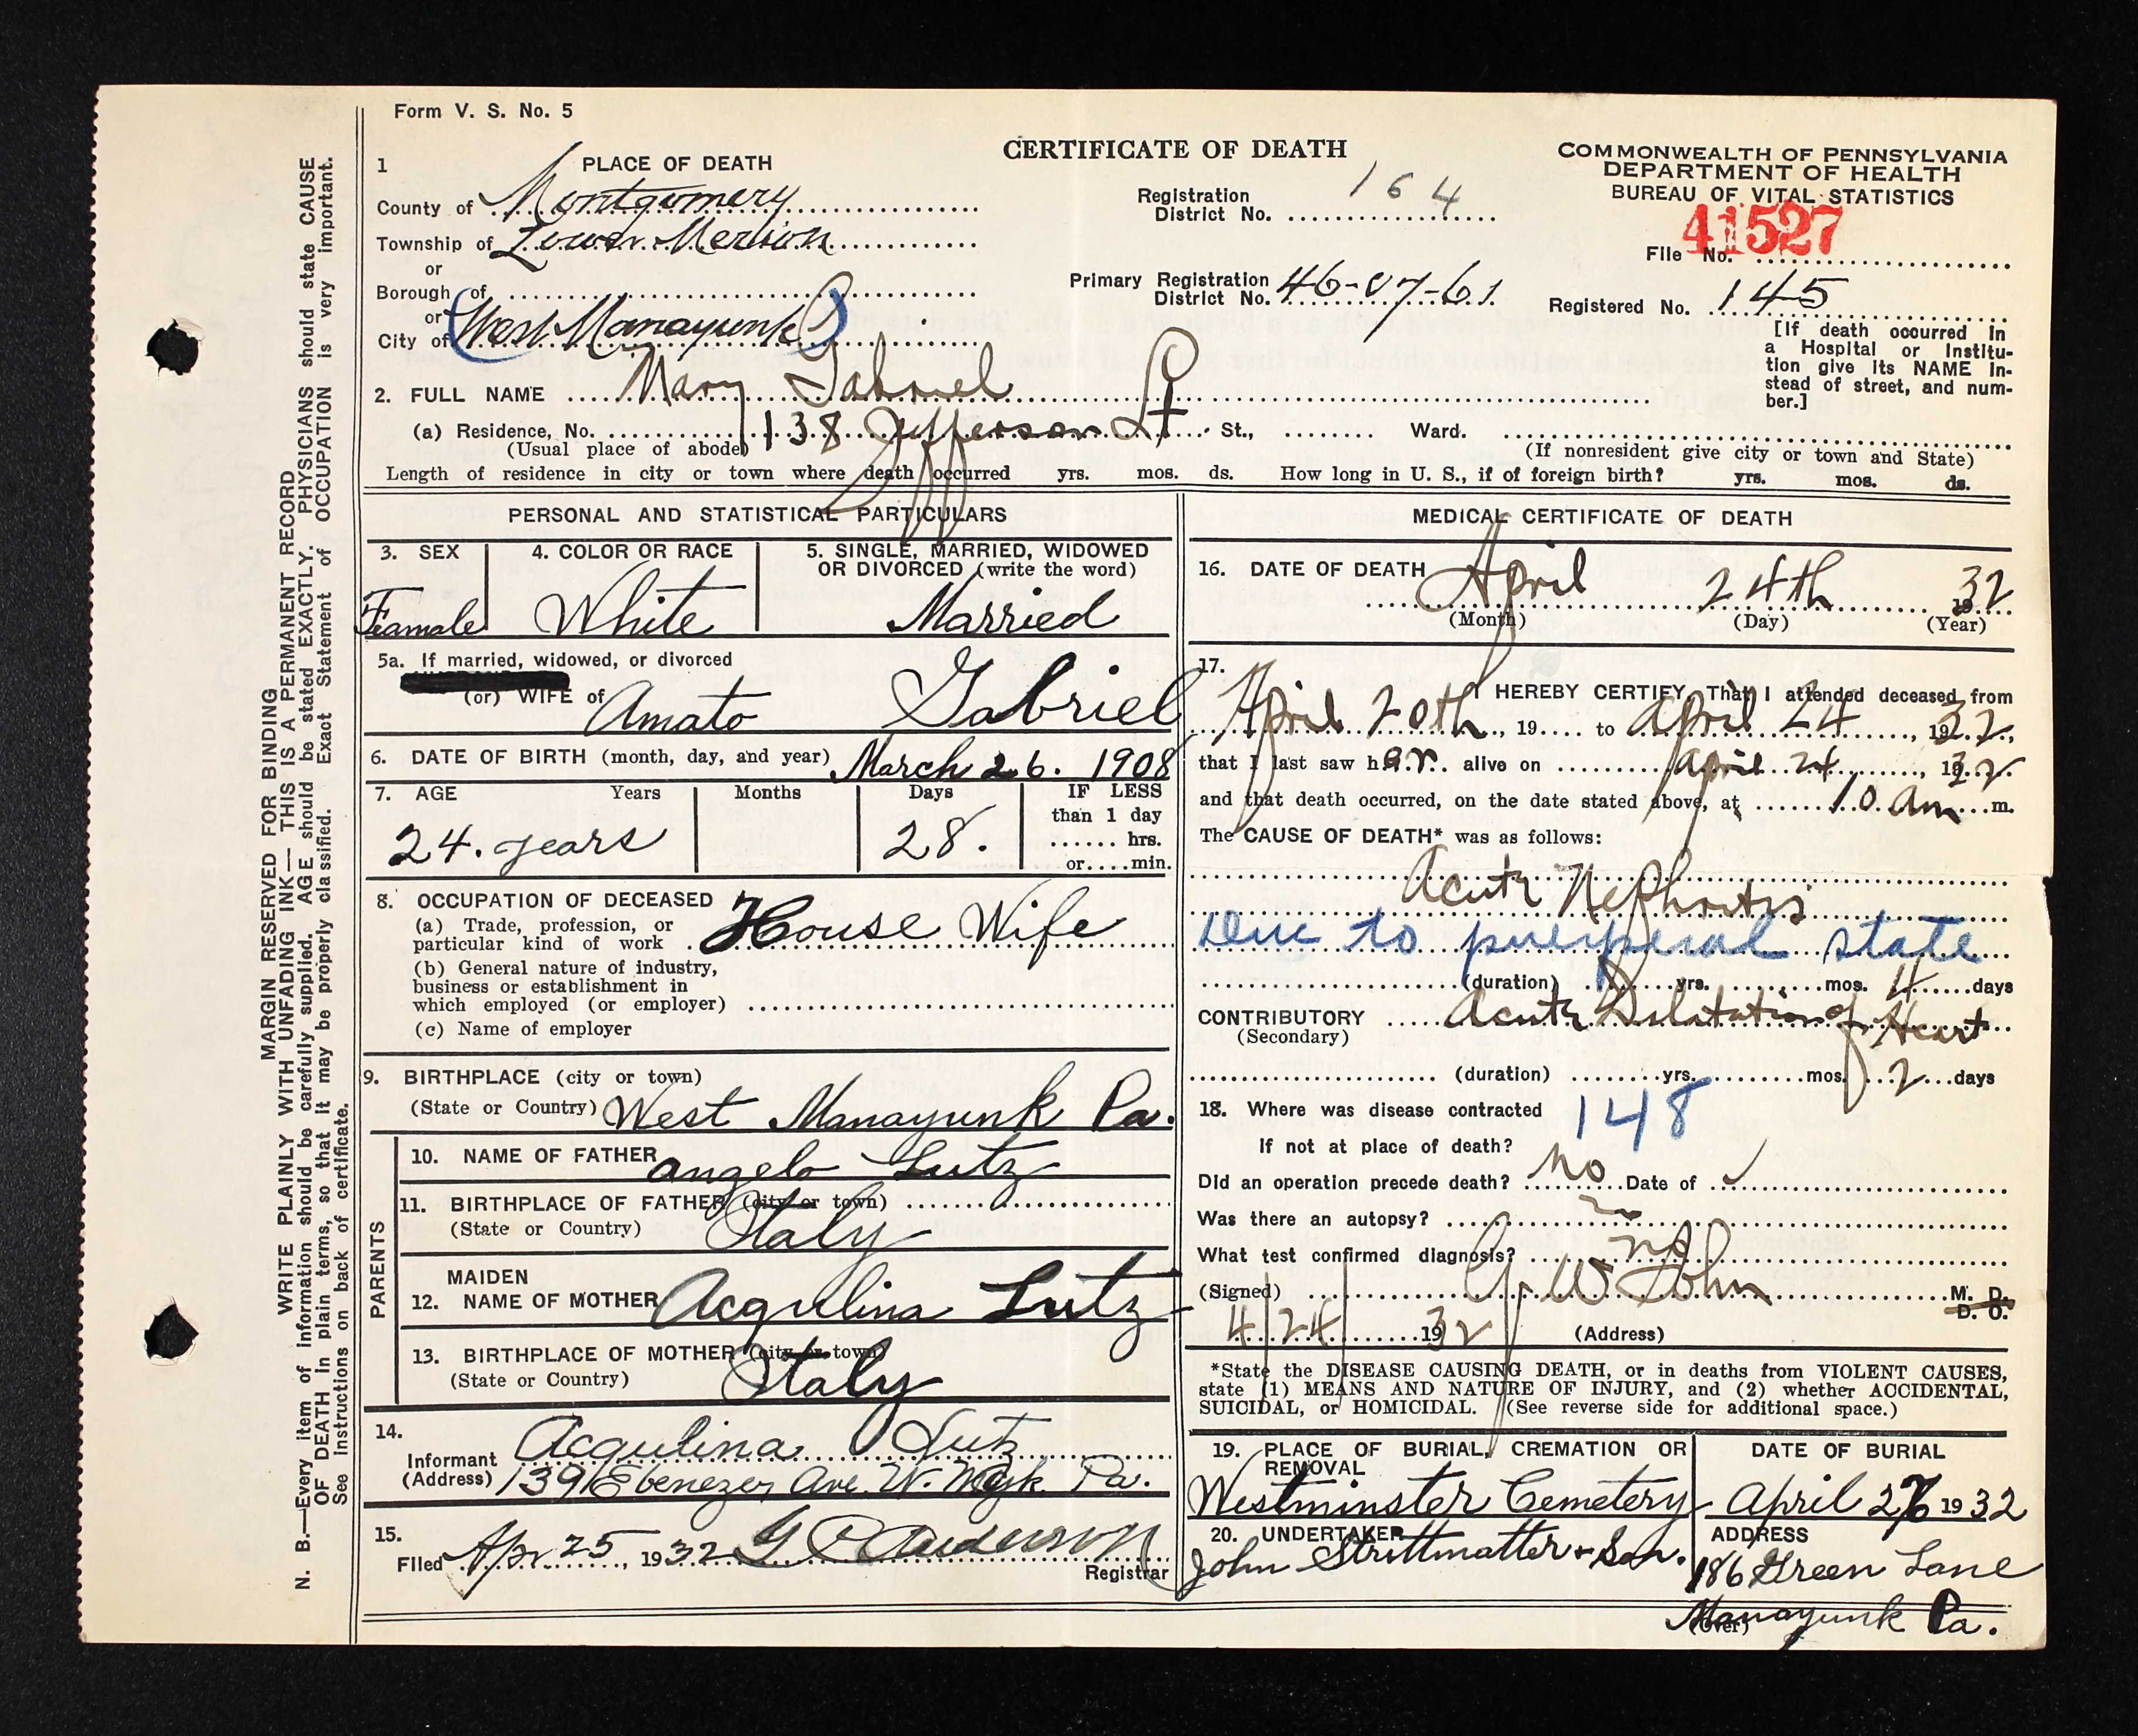 Form V. S. No. 5
CERTIFICATE OF DEATH
COMMONWEALTH OF PENNSYLVANIA
DEPARTMENT OF HEALTH
BUREAU OF VITAL STATISTICS
41527
File No.
Registered No. 145
[If death occurred in a Hospital or Institution give its NAME instead of street, and number.]
Registration District No. 164
Primary Registration District No. 46-07-61
1 PLACE OF DEATH
County of Montgomery
Township of Lower Merion
or
Borough of
or
City of West Manayunk
2. FULL NAME Mary Gabriel
(a) Residence, No. 138 Jefferson St St., Ward.
(Usual place of abode) (If nonresident give city or town and State)
Length of residence in city or town where death occurred yrs. mos. ds. How long in U. S., if of foreign birth? yrs. mos. ds.
PERSONAL AND STATISTICAL PARTICULARS
3. SEX 4. COLOR OR RACE 5. SINGLE, MARRIED, WIDOWED OR DIVORCED (write the word)
Feamale White Married
5a. If married, widowed, or divorced
(or) WIFE of Amato Gabriel
6. DATE OF BIRTH (month, day, and year) March 26. 1908
7. AGE Years Months Days IF LESS than 1 day
24. years 28. hrs.
or min.
8. OCCUPATION OF DECEASED
(a) Trade, profession, or particular kind of work House Wife
(b) General nature of industry, business or establishment in which employed (or employer)
(c) Name of employer
9. BIRTHPLACE (city or town)
(State or Country) West Manayunk Pa.
PARENTS
10. NAME OF FATHER Angelo Lutz
11. BIRTHPLACE OF FATHER (city or town)
(State or Country) Italy
12. MAIDEN NAME OF MOTHER Acqulina Lutz
13. BIRTHPLACE OF MOTHER (city or town)
(State or Country) Italy
14.
Informant Acqulina Lutz
(Address) 139 Ebenezer Ave. W. Mayk. Pa.
15.
Filed Apr 25, 1932 G C Anderson
Registrar
MEDICAL CERTIFICATE OF DEATH
16. DATE OF DEATH April 24th 1932
(Month) (Day) (Year)
17.
I HEREBY CERTIFY, That I attended deceased from
April 20th, 19 to April 24, 1932,
that I last saw her alive on April 24, 1932
and that death occurred, on the date stated above, at 10 am m.
The CAUSE OF DEATH* was as follows:
Acute Nephritis
Due to puerperal state
(duration) yrs. mos. 4 days
CONTRIBUTORY Acute Dilatation of Heart
(Secondary)
(duration) yrs. mos. 2 days
18. Where was disease contracted 148
If not at place of death?
Did an operation precede death? no Date of
Was there an autopsy?
What test confirmed diagnosis? no
(Signed) M. D.
D. O.
4/24/1932 (Address)
*State the DISEASE CAUSING DEATH, or in deaths from VIOLENT CAUSES,
state (1) MEANS AND NATURE OF INJURY, and (2) whether ACCIDENTAL,
SUICIDAL, or HOMICIDAL. (See reverse side for additional space.)
19. PLACE OF BURIAL, CREMATION OR REMOVAL DATE OF BURIAL
Westminster Cemetery April 1932
20. UNDERTAKER ADDRESS
John Strittmatter & Son. 186 Green Lane
Manayunk Pa.
(Over)
MARGIN RESERVED FOR BINDING
WRITE PLAINLY WITH UNFADING INK—THIS IS A PERMANENT RECORD
N. B.—Every item of information should be carefully supplied. AGE should be stated EXACTLY. PHYSICIANS should state CAUSE
OF DEATH in plain terms, so that it may be properly classified. Exact Statement of OCCUPATION is very important.
See instructions on back of certificate.